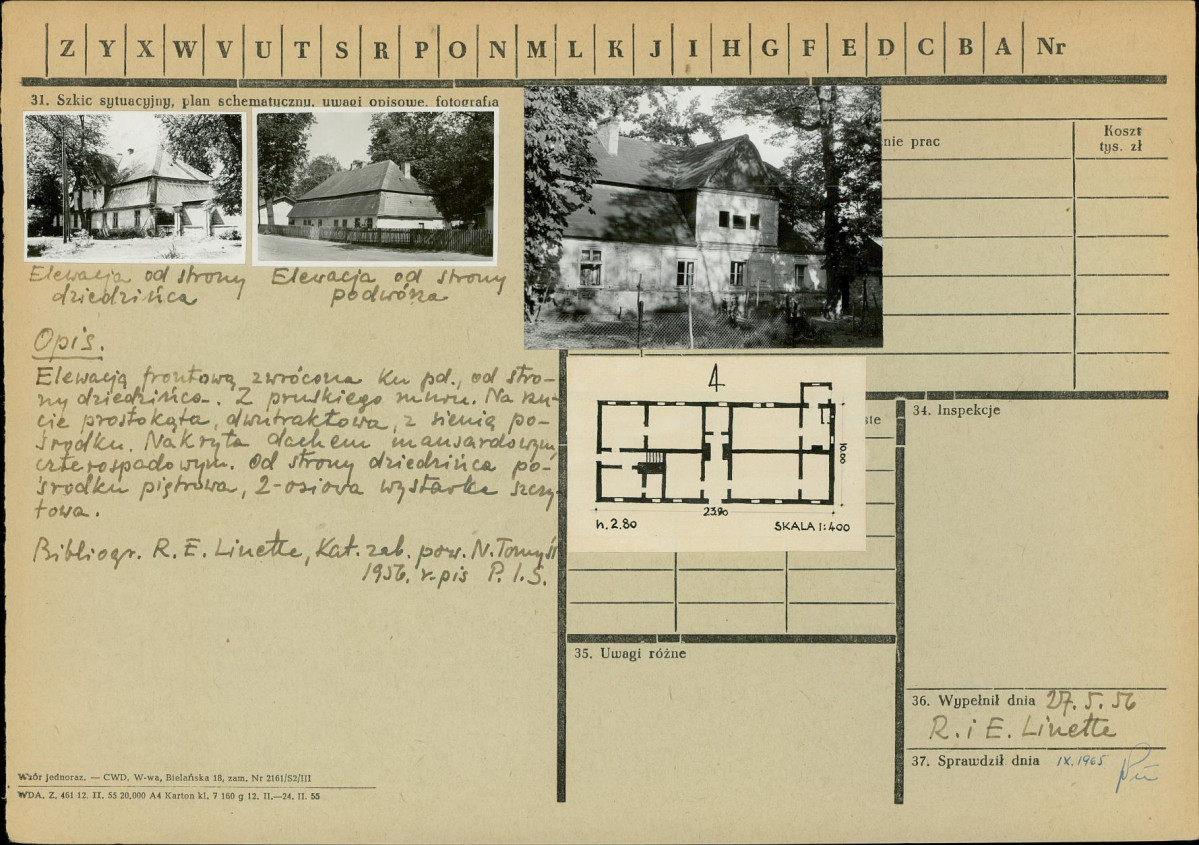 Z Y X W V U T S R P O N M L K J I H G F E D C B A Nr
31. Szkic sytuacyjny, plan schematyczny, uwagi opisowe, fotografia
Elewacja od strony
dziedzińca
Elewacja od strony
podwórza
Opis.
Elewacją frontową zwrócona ku pd., od stro-
ny dziedzińca. Z pruskiego muru. Na rzu-
cie prostokąta, dwutraktowa, z sienią po-
środku. Nakryta dachem mansardowym
czterospadowym. Od strony dziedzińca po-
środku piętrowa, 2-osiowa wystawka szczy-
towa.
Bibliogr. R. E. Linette, Kat. zab. pow. N. Tomyśl
1956. r-pis P. I. S.
nie prac
Koszt
tys. zł
4
10.00
23.90
h. 2.80
SKALA 1:400
34. Inspekcje
35. Uwagi różne
36. Wypełnił dnia 27. 5. 56
R. i E. Linette
37. Sprawdził dnia IX. 1965
Wzór jednoraz. — CWD, W-wa, Bielańska 18, zam. Nr 2161/S2/III
WDA. Z. 461 12. II. 55 20.000 A4 Karton kl. 7 160 g 12. II.—24. II. 55